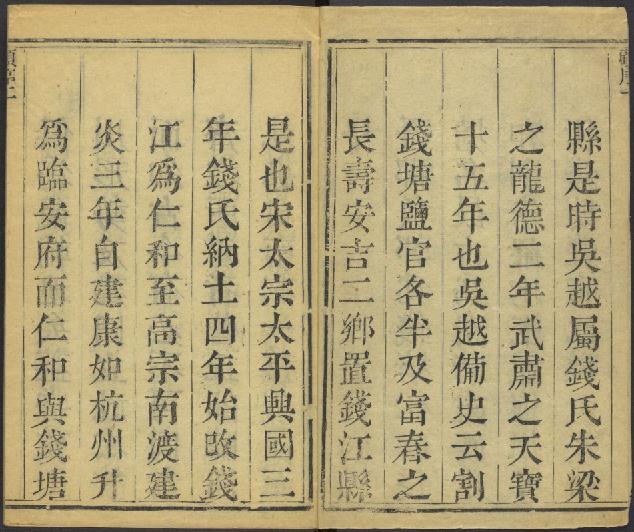 縣是時吳越屬錢氏朱梁
之龍德二年武肅之天寶
十五年也吳越備史云割
錢塘鹽官各半及富春之
長壽安吉二鄉置錢江縣
是也宋太宗太平興國三
年錢氏納土四年始改錢
江爲仁和至高宗南渡建
炎三年自建康如杭州升
爲臨安府而仁和與錢塘